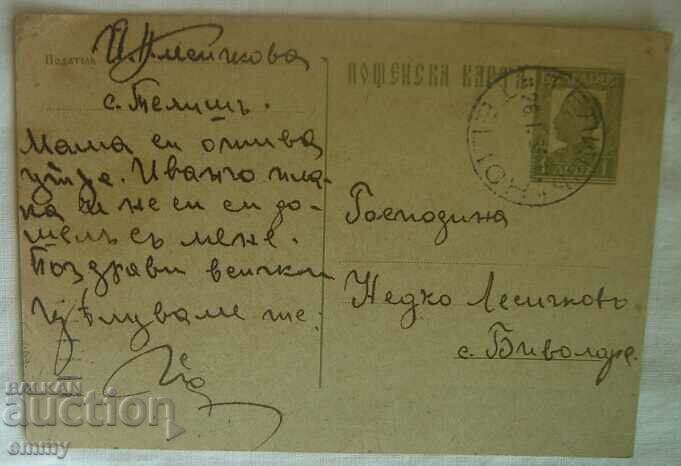 Податель
с. Телишъ.
Мама си отива
утре. Иванчо пла-
ка че не си си до-
шелъ съ мене.
Поздрави всички
Цѣлуваме те.
ПОЩЕНСКА КАРТА
Господина
Недко Лесичковъ
с. Биволаре.
BALKAN
auction
emmy